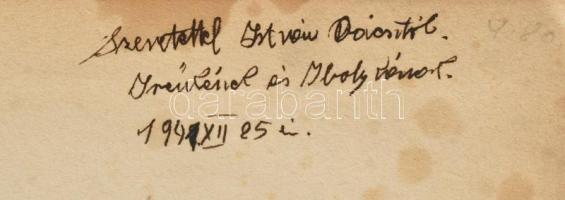 Szeretettel István bácsitól.
Irénkének és Ibolykának.
1941 XII 25 én.
darabanth